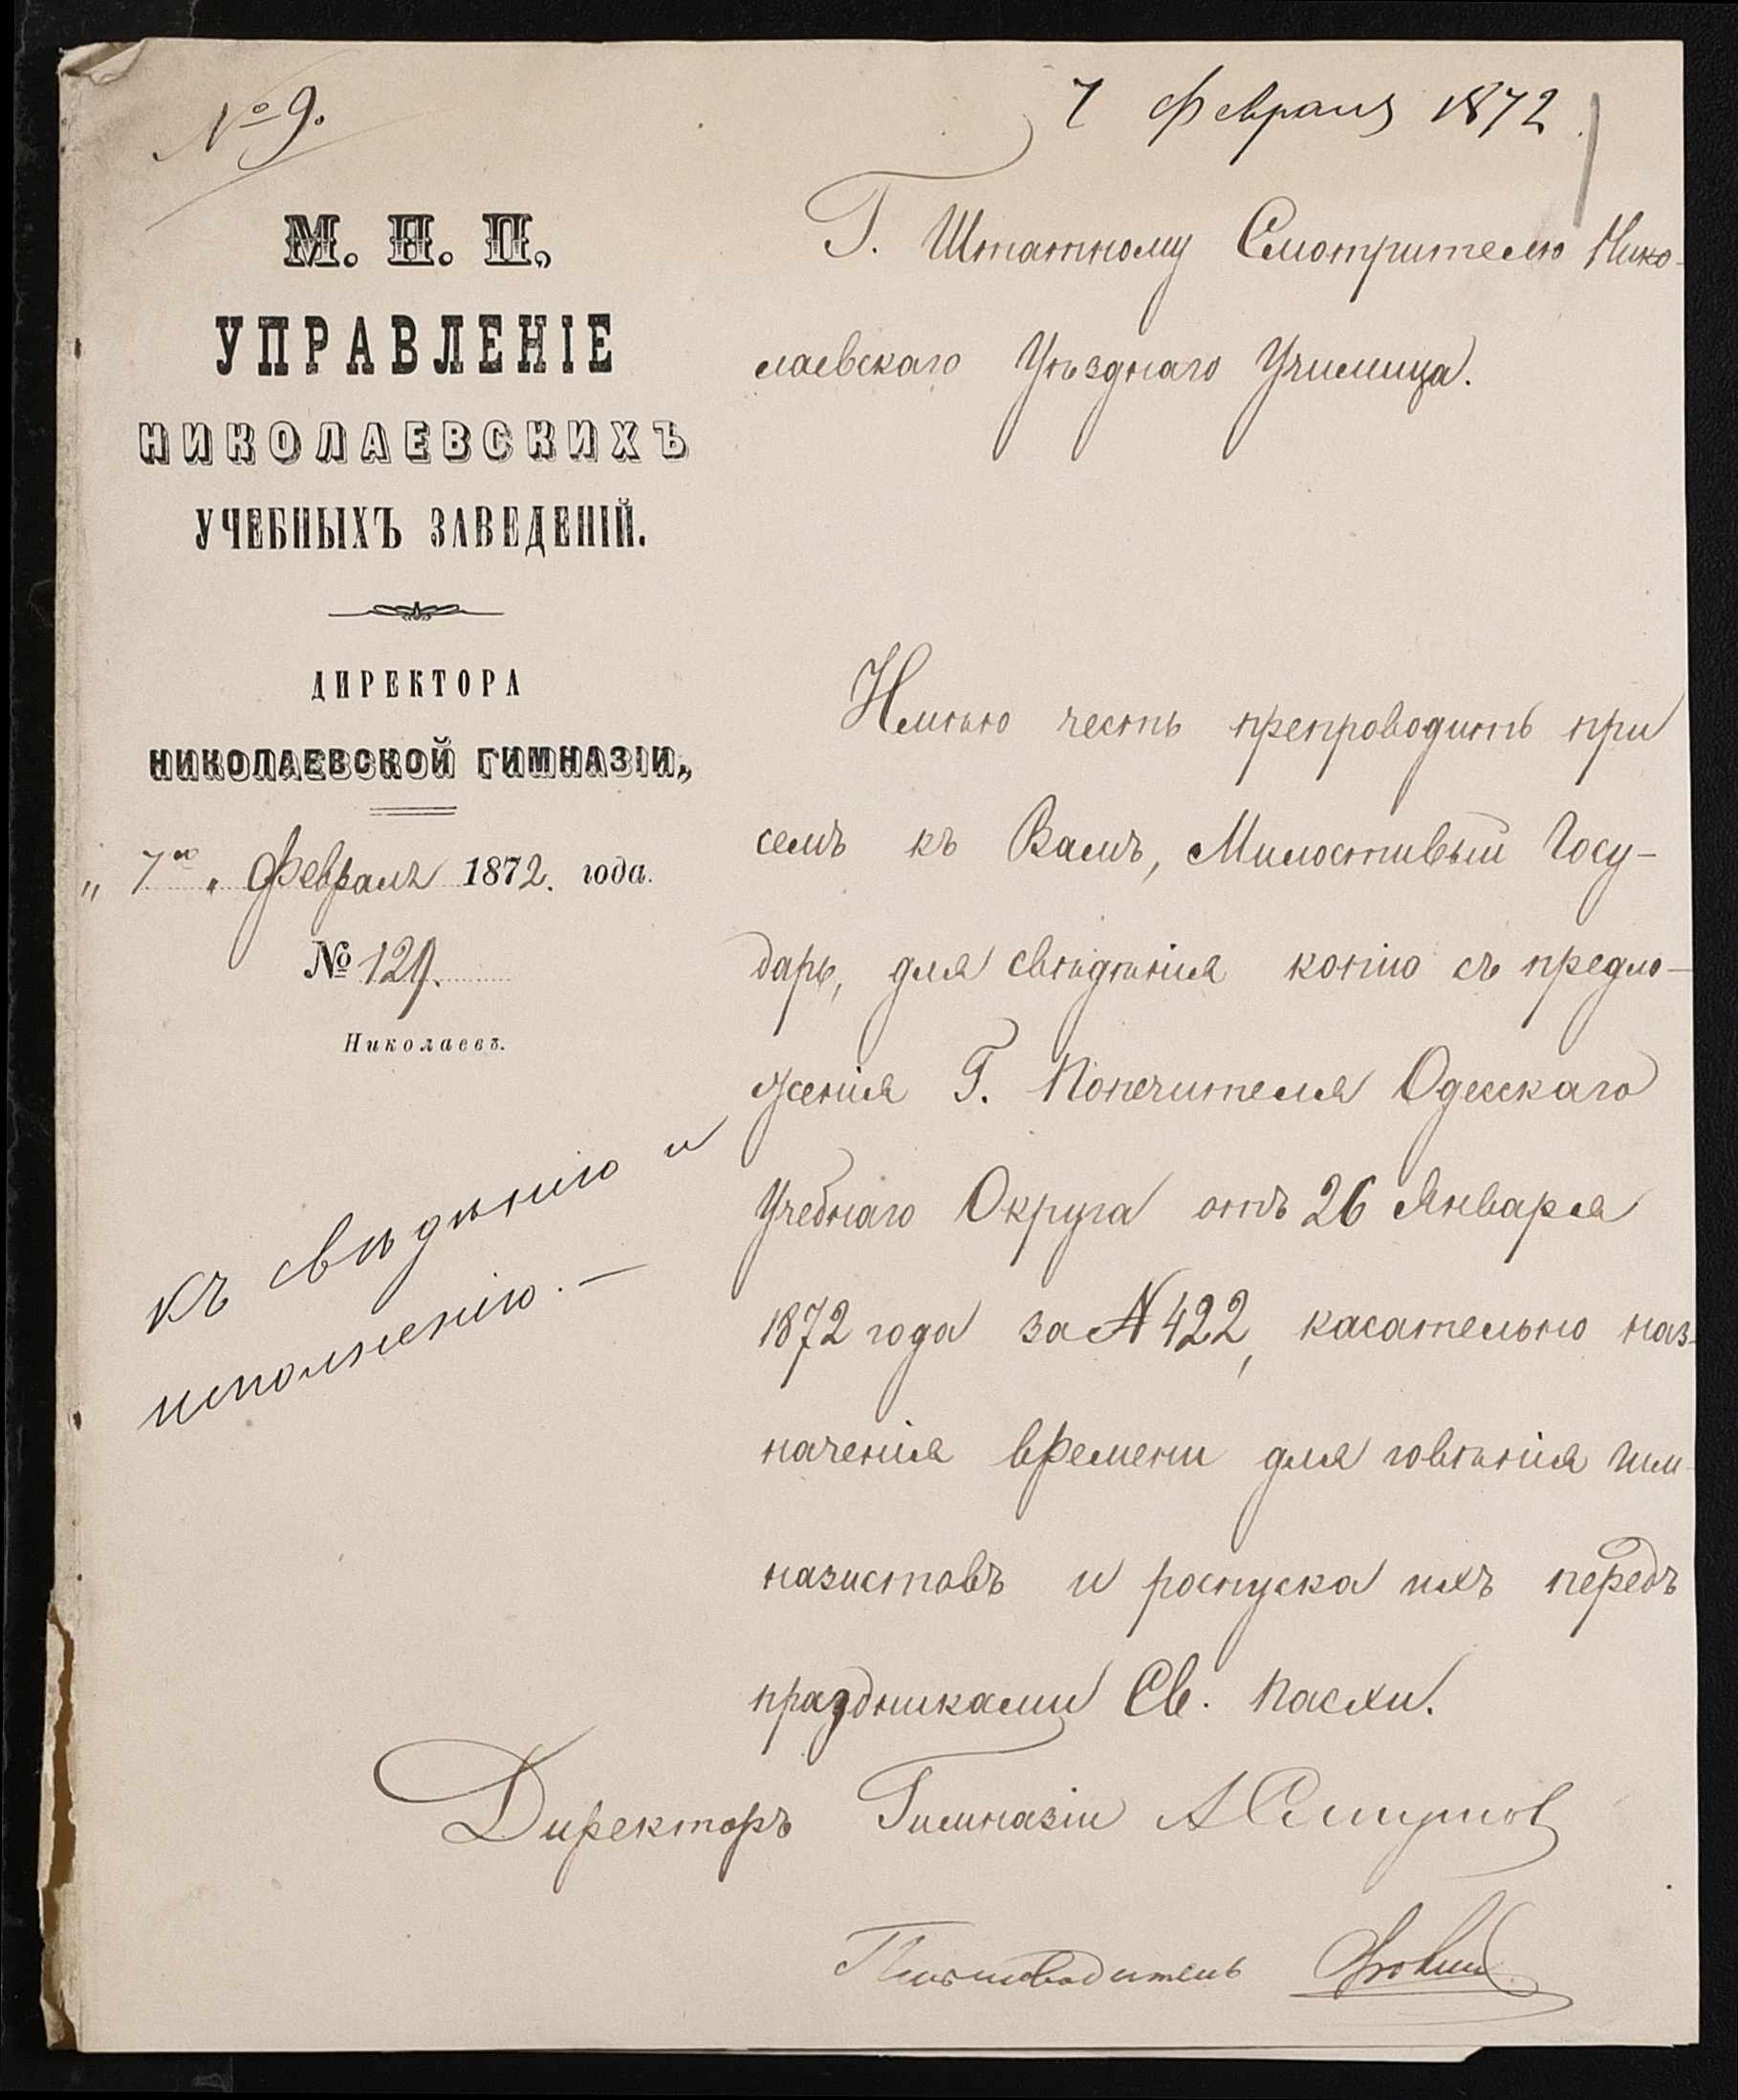 № 9.
7 Февраля 1872
М. Н. П.
УПРАВЛЕНІЕ
НИКОЛАЕВСКИХЪ
УЧЕБНЫХЪ ЗАВЕДЕНІЙ.
ДИРЕКТОРА
НИКОЛАЕВСКОЙ ГИМНАЗІИ,
„ 7го „ Февраля 1872. года.
№ 129.
Николаевъ.
къ свѣдѣнію и
исполненію. —
Г. Штатному Смотрителю Нико-
лаевскаго Уѣзднаго Училища.
Имѣю честь препроводить при
семъ къ Вамъ, Милостивый Госу-
дарь, для свѣдѣнія копію съ предло-
женія Г. Попечителя Одесскаго
Учебнаго Округа отъ 26 Января
1872 года за № 422, касательно наз-
наченія времени для говѣнія гим-
назистовъ и роспуска ихъ передъ
праздниками Св. Пасхи.
Директоръ Гимназіи А Смирнов
Письмоводитель